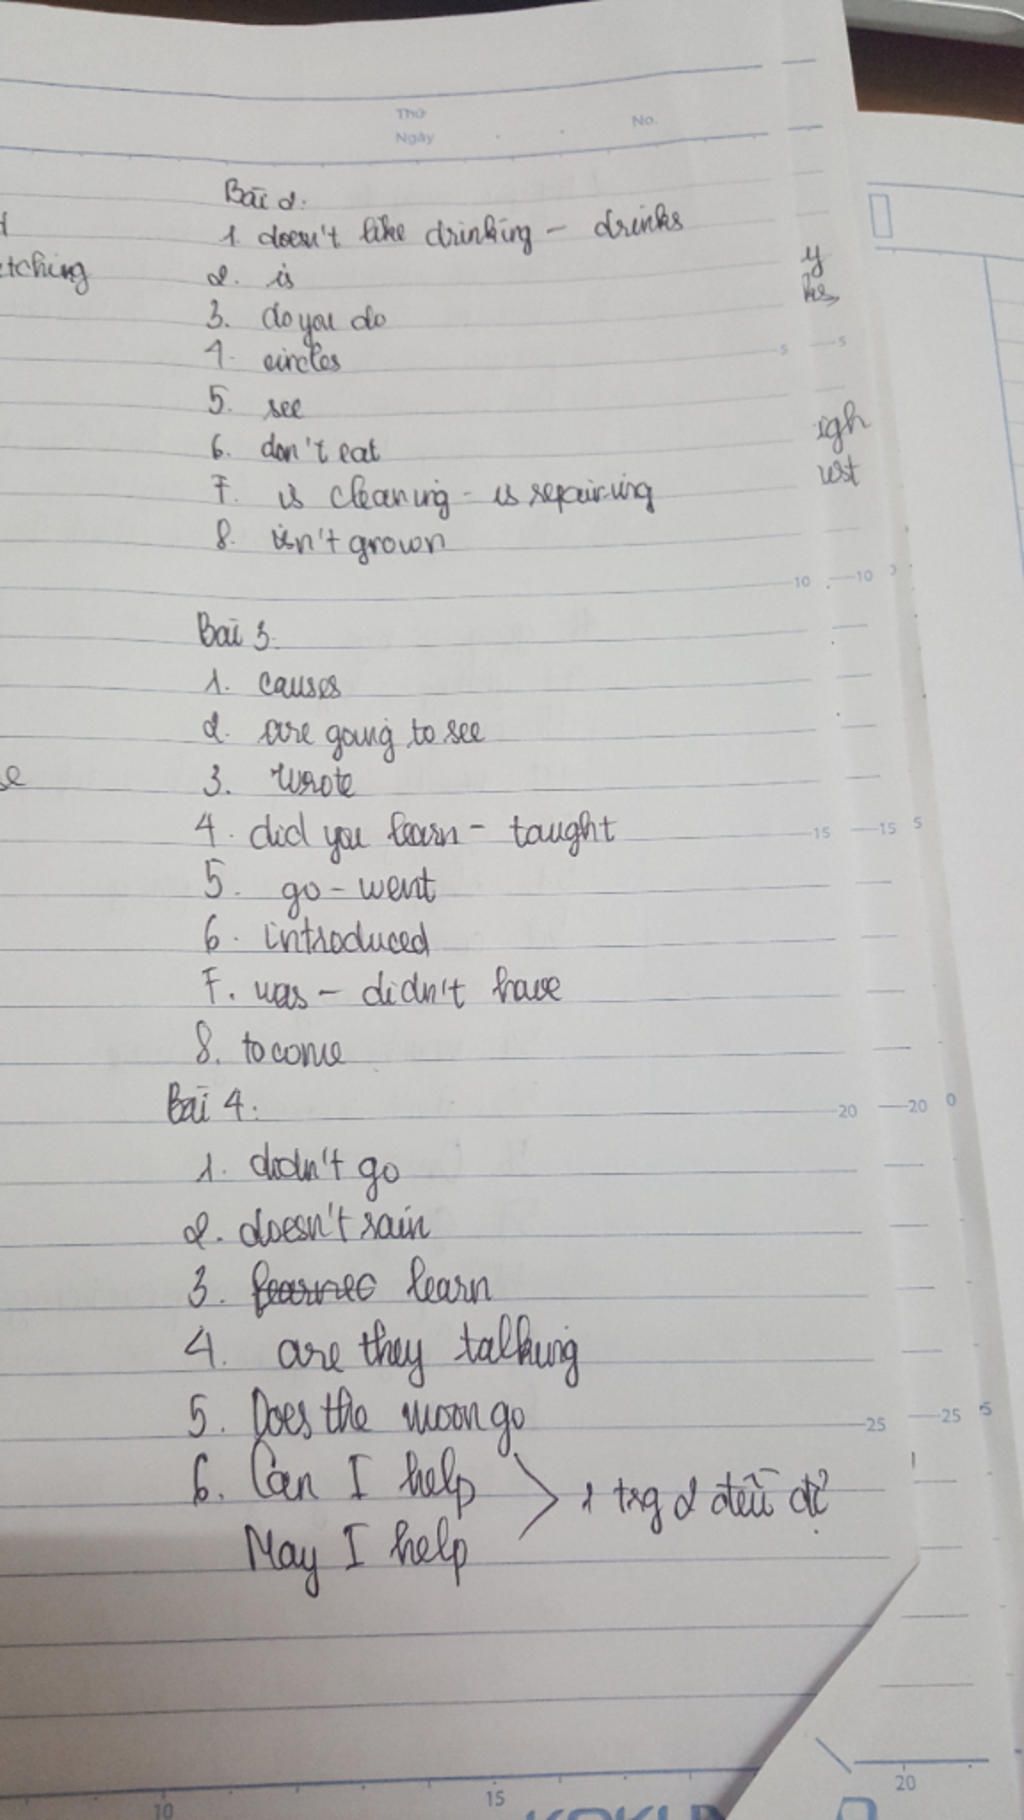 Thứ
Ngày
No.
Bài 2:
1. doesn't like drinking - drinks
etching
2. is
3. do you do
4. circles
5. see
6. don't eat
7. is cleaning - is repairing
8. isn't grown
Bài 3.
1. causes
2. are going to see
3. wrote
4. did you learn - taught
5. go - went
6. introduced
7. was - didn't have
8. to come
Bài 4:
1. didn't go
2. doesn't rain
3. learn
4. are they talking
5. Does the moon go
6. Can I help
May I help
1 trg 2 đều đc
y
igh
ust
se
5
5
10
10
15
15
5
20
20
0
25
25
5
10
15
20